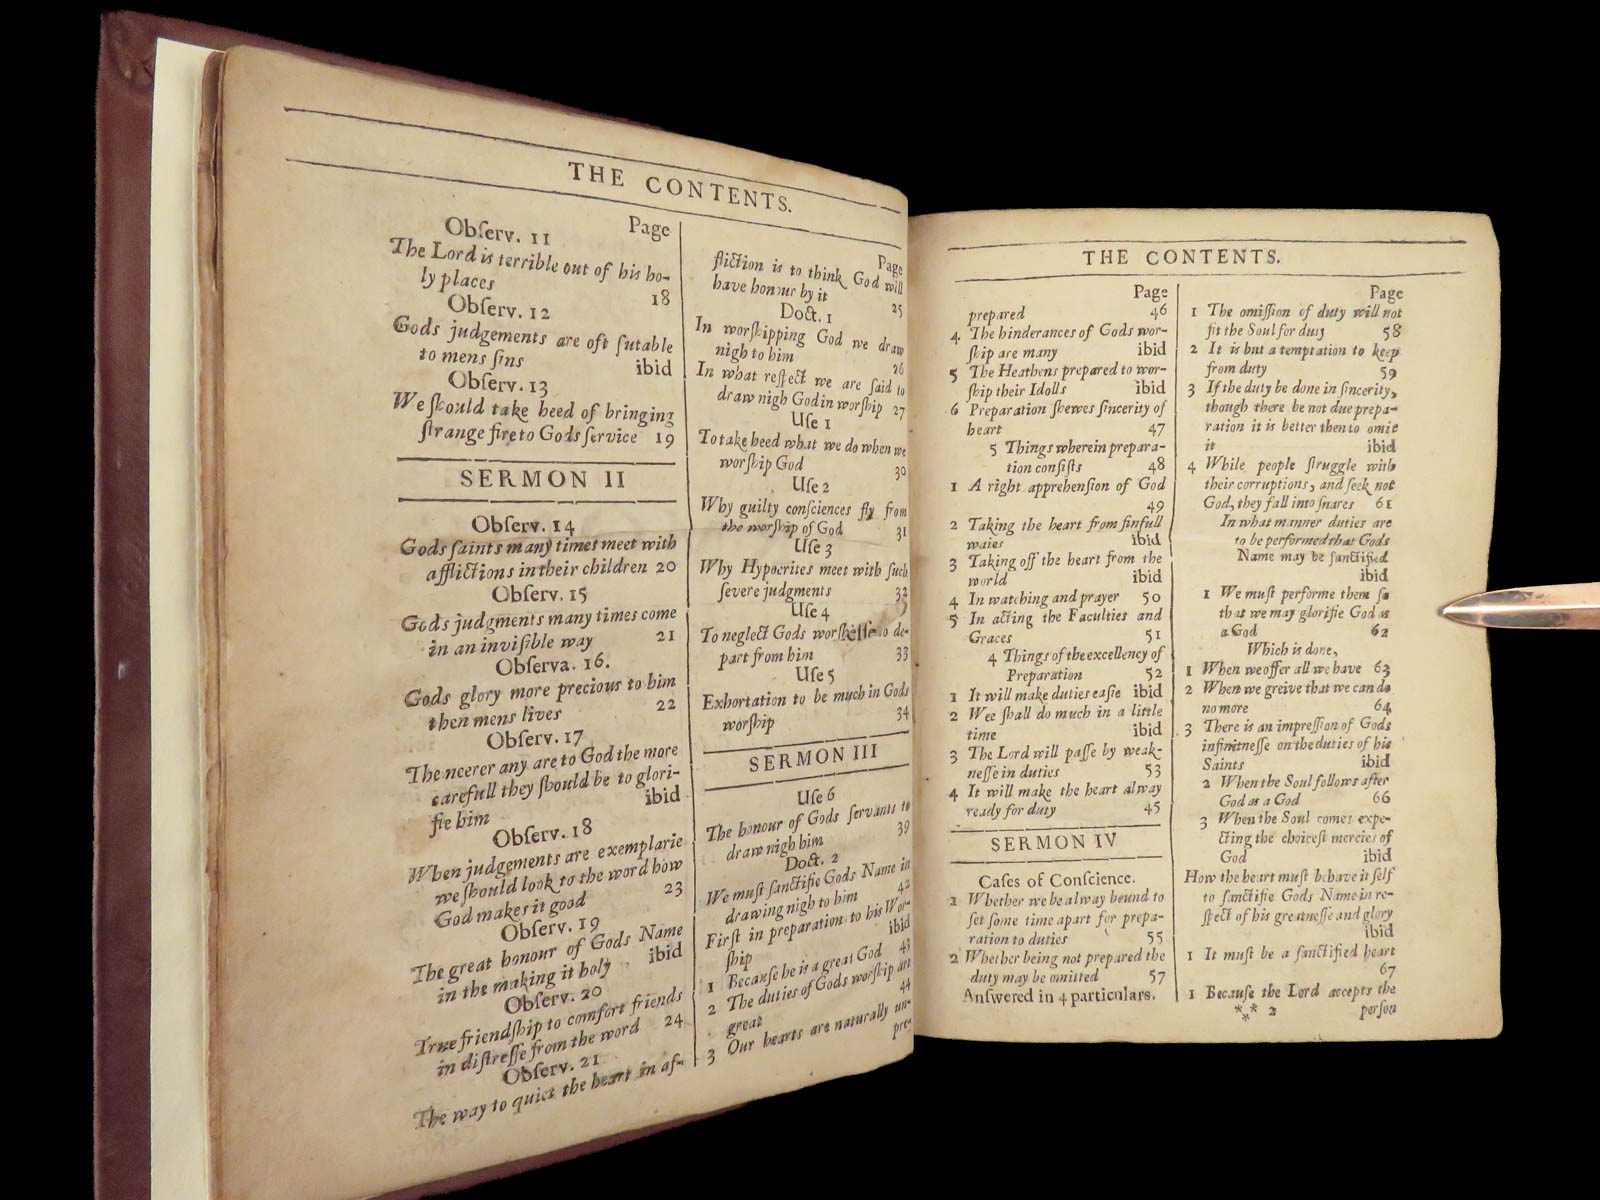 THE CONTENTS.
Page
Obſerv. 11
The Lord is terrible out of his ho-
ly places 18
Obſerv. 12
Gods judgements are oft ſutable
to mens ſins ibid
Obſerv. 13
We ſhould take heed of bringing
ſtrange fire to Gods ſervice 19
SERMON II
Obſerv. 14
Gods ſaints many times meet with
afflictions in their children 20
Obſerv. 15
Gods judgments many times come
in an inviſible way 21
Obſerva. 16.
Gods glory more precious to him
then mens lives 22
Obſerv. 17
The neerer any are to God the more
carefull they ſhould be to glori-
fie him ibid
Obſerv. 18
When judgements are exemplarie
we ſhould look to the word how
God makes it good 23
Obſerv. 19
The great honour of Gods Name
in the making it holy ibid
Obſerv. 20
True friendſhip to comfort friends
in diſtreſſe from the word 24
Obſerv. 21
The way to quiet the heart in af-
Page
fliction is to think God will
have honour by it 25
Doct. 1
In worſhipping God we draw
nigh to him 26
In what reſpect we are ſaid to
draw nigh God in worſhip 27
Uſe 1
To take heed what we do when we
worſhip God 30
Uſe 2
Why guilty conſciences fly from
the worſhip of God 31
Uſe 3
Why Hypocrites meet with ſuch
ſevere judgments 32
Uſe 4
To neglect Gods to de-
part from him 33
Uſe 5
Exhortation to be much in Gods
worſhip 34
SERMON III
Uſe 6
The honour of Gods ſervants to
draw nigh him 39
Doct. 2
We muſt ſanctifie Gods Name in
drawing nigh to him 42
Firſt in preparation to his Wor-
ſhip ibid
1 Becauſe he is a great God 43
2 The duties of Gods worſhip are
great 44
3 Our hearts are naturally un-
pre-
THE CONTENTS.
Page
prepared 46
4 The hinderances of Gods wor-
ſhip are many ibid
5 The Heathens prepared to wor-
ſhip their Idolls ibid
6 Preparation ſhewes ſincerity of
heart 47
5 Things wherein prepara-
tion conſiſts 48
1 A right apprehenſion of God
49
2 Taking the heart from ſinfull
waies ibid
3 Taking off the heart from the
world ibid
4 In watching and prayer 50
5 In acting the Faculties and
Graces 51
4 Things of the excellency of
Preparation 52
1 It will make duties eaſie ibid
2 Wee ſhall do much in a little
time ibid
3 The Lord will paſſe by weak-
neſſe in duties 53
4 It will make the heart alway
ready for duty 45
SERMON IV
Caſes of Conſcience.
1 Whether we be alway bound to
ſet ſome time apart for prepa-
ration to duties 55
2 Whether being not prepared the
duty may be omitted 57
Anſwered in 4 particulars.
Page
1 The omiſſion of duty will not
fit the Soul for duty 58
2 It is but a temptation to keep
from duty 59
3 If the duty be done in ſincerity,
though there be not due prepa-
ration it is better then to omit
it ibid
4 While people ſtruggle with
their corruptions, and ſeek not
God, they fall into ſnares 61
In what manner duties are
to be performed that Gods
Name may be ſanctified
ibid
1 We muſt performe them ſo
that we may glorifie God as
a God 62
Which is done,
1 When we offer all we have 63
2 When we greive that we can do
no more 64
3 There is an impreſſion of Gods
infinitneſſe on the duties of his
Saints ibid
2 When the Soul follows after
God as a God 66
3 When the Soul comes expe-
cting the choiceſt mercies of
God ibid
How the heart muſt behave it ſelf
to ſanctifie Gods Name in re-
ſpect of his greatneſſe and glory
ibid
1 It muſt be a ſanctified heart
67
1 Becauſe the Lord accepts the
*** 2 perſon